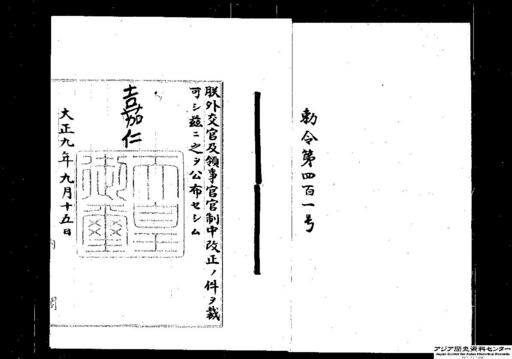 勅令第四百一号
朕外交官及領事官官制中改正ノ件ヲ裁
可シ茲ニ之ヲ公布セシム
嘉仁
天皇
御璽
大正九年九月十五日
アジア歴史資料センター
Japan Center for Asian Historical Records